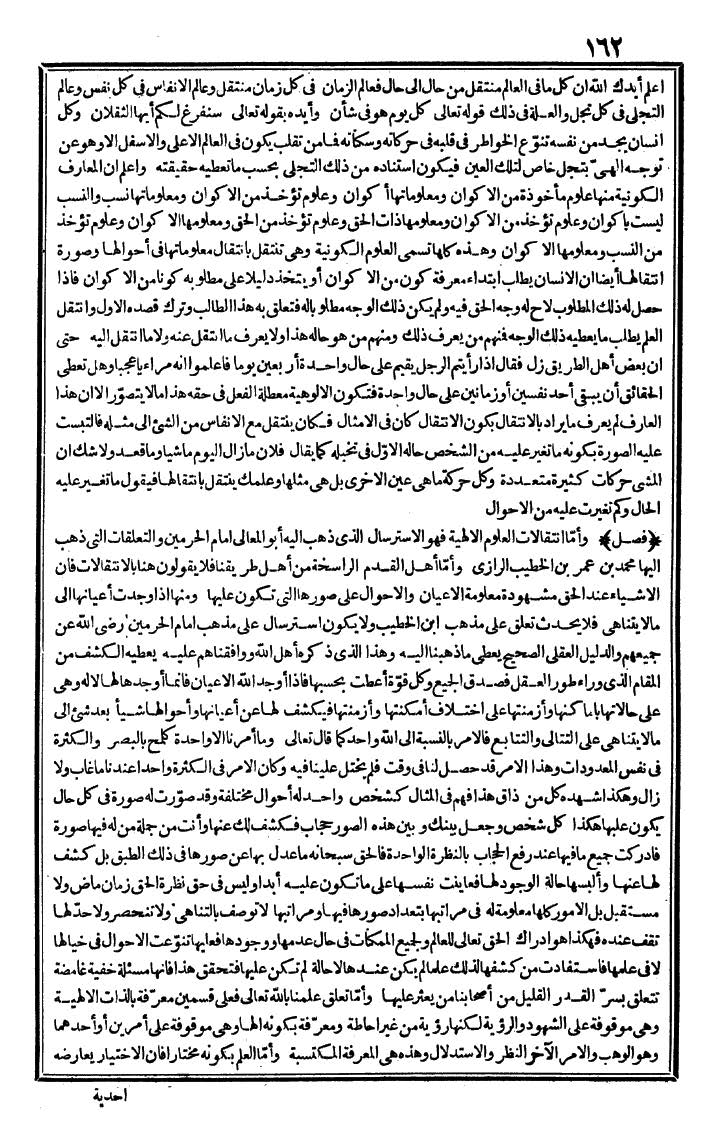 ١٦٢
اعلم أيدك الله ان كل مافى العالم منتقل من حال الى حال فعالم الزمان فى كل زمان منتقل وعالم الانفاس فى كل نفس وعالم
التجلى فى كل تجل والعلة فى ذلك قوله تعالى كل يوم هو فى شأن وأيده بقوله تعالى سنفرغ لكم أيها الثقلان وكل
انسان يجد من نفسه تنوّع الخواطر فى قلبه فى حركاته وسكناته فما من تقلب يكون فى العالم الاعلى والاسفل الا وهو عن
توجه الهىّ بتجل خاص لتلك العين فيكون استناده من ذلك التجلى بحسب ما تعطيه حقيقته واعلم ان المعارف
الكونية منها علوم مأخوذة من الاكوان ومعلوماتها أكوان وعلوم تؤخذ من الاكوان ومعلوماتها نسب والنسب
ليست باكوان وعلوم تؤخذ من الاكوان ومعلومها ذات الحق وعلوم تؤخذ من الحق ومعلومها الاكوان وعلوم تؤخذ
من النسب ومعلومها الاكوان وهذه كلها تسمى العلوم الكونية وهى تنتقل بانتقال معلوماتها فى أحوالها وصورة
انتقالها أيضا ان الانسان يطلب ابتداء معرفة كون من الاكوان أو يتخذ دليلا على مطلوبه كونا من الاكوان فاذا
حصل له ذلك المطلوب لاح له وجه الحق فيه ولم يكن ذلك الوجه مطلوبا له فتعلق به هذا الطالب وترك قصده الاول وانتقل
العلم يطلب ما يعطيه ذلك الوجه فمنهم من يعرف ذلك ومنهم من هو حاله هذا ولا يعرف ما انتقل عنه ولا ما انتقل اليه حتى
ان بعض أهل الطريق زل فقال اذا رأيتم الرجل يقيم على حال واحدة أربعين يوما فاعلموا انه مراء يا عجبا وهل تعطى
الحقائق أن يبقى أحد نفسين أو زمانين على حال واحدة فتكون الالوهية معطلة الفعل فى حقه هذا ما لا يتصوّر الا ان هذا
العارف لم يعرف ما يراد بالانتقال بكون الانتقال كان فى الامثال فكان ينتقل مع الانفاس من الشئ الى مثله فالتبست
عليه الصورة بكونه ما تغير عليه من الشخص حاله الاوّل فى تخيله كما يقال فلان ما زال اليوم ماشيا وما قعد ولا شك ان
المشى حركات كثيرة متعددة وكل حركة ما هى عين الاخرى بل هى مثلها وعلمك ينتقل بانتقالها فيقول ما تغير عليه
الحال وكم تغيرت عليه من الاحوال
﴿فصل﴾ وأمّا انتقالات العلوم الالهية فهو الاسترسال الذى ذهب اليه أبو المعالى امام الحرمين والتعلقات التى ذهب
اليها محمد بن عمر بن الخطيب الرازى وأمّا أهل القدم الراسخة من أهل طريقنا فلا يقولون هنا بالانتقالات فان
الاشياء عند الحق مشهودة معلومة الاعيان والاحوال على صورها التى تكون عليها ومنها اذا وجدت أعيانها الى
ما لا يتناهى فلا يحدث تعلق على مذهب ابن الخطيب ولا يكون استرسال على مذهب امام الحرمين رضى الله عن
جميعهم والدليل العقلى الصحيح يعطى ما ذهبنا اليه وهذا الذى ذكره أهل الله ووافقناهم عليه يعطيه الكشف من
المقام الذى وراء طور العقل فصدق الجميع وكل قوّة أعطت بحسبها فاذا أوجد الله الاعيان فانما أوجدها لها لا له وهى
على حالاتها باماكنها وأزمنتها على اختلاف أمكنتها وأزمنتها فيكشف لها عن أعيانها وأحوالها شيأ بعد شئ الى
ما لا يتناهى على التتالى والتتابع فالامر بالنسبة الى الله واحد كما قال تعالى وما أمرنا الا واحدة كلمح بالبصر والكثرة
فى نفس المعدودات وهذا الامر قد حصل لنا فى وقت فلم يختل علينا فيه وكان الامر فى الكثرة واحدا عندنا ما غاب ولا
زال وهكذا شهده كل من ذاق هذا فهم فى المثال كشخص واحد له أحوال مختلفة وقد صوّرت له صورة فى كل حال
يكون عليها هكذا كل شخص وجعل بينك وبين هذه الصور حجاب فكشف لك عنها وأنت من جملة من له فيها صورة
فادركت جميع ما فيها عند رفع الحجاب بالنظرة الواحدة فالحق سبحانه ما عدل بها عن صورها فى ذلك الطبق بل كشف
لها عنها وألبسها حالة الوجود لها فعاينت نفسها على ما تكون عليه أبدا وليس فى حق نظرة الحق زمان ماض ولا
مستقبل بل الامور كلها معلومة له فى مراتبها بتعداد صورها فيها ومراتبها لا توصف بالتناهى ولا تنحصر ولا حدّ لها
تقف عنده فهكذا هو ادراك الحق تعالى للعالم ولجميع الممكنات فى حال عدمها ووجودها فعليها تنوّعت الاحوال فى خيالها
لا فى علمها فاستفادت من كشفها لذلك علما لم يكن عندها لا حالة لم تكن عليها فتحقق هذا فانها مسئلة خفية غامضة
تتعلق بسرّ القدر القليل من أصحابنا من يعثر عليها وأمّا تعلق علمنا بالله تعالى فعلى قسمين معرفة بالذات الالهية
وهى موقوفة على الشهود والرؤية لكنها رؤية من غير احاطة ومعرفة بكونه الها وهى موقوفة على أمرين أو أحدهما
وهو الوهب والامر الآخر النظر والاستدلال وهذه هى المعرفة المكتسبة وأمّا العلم بكونه مختارا فان الاختيار يعارضه
احدية